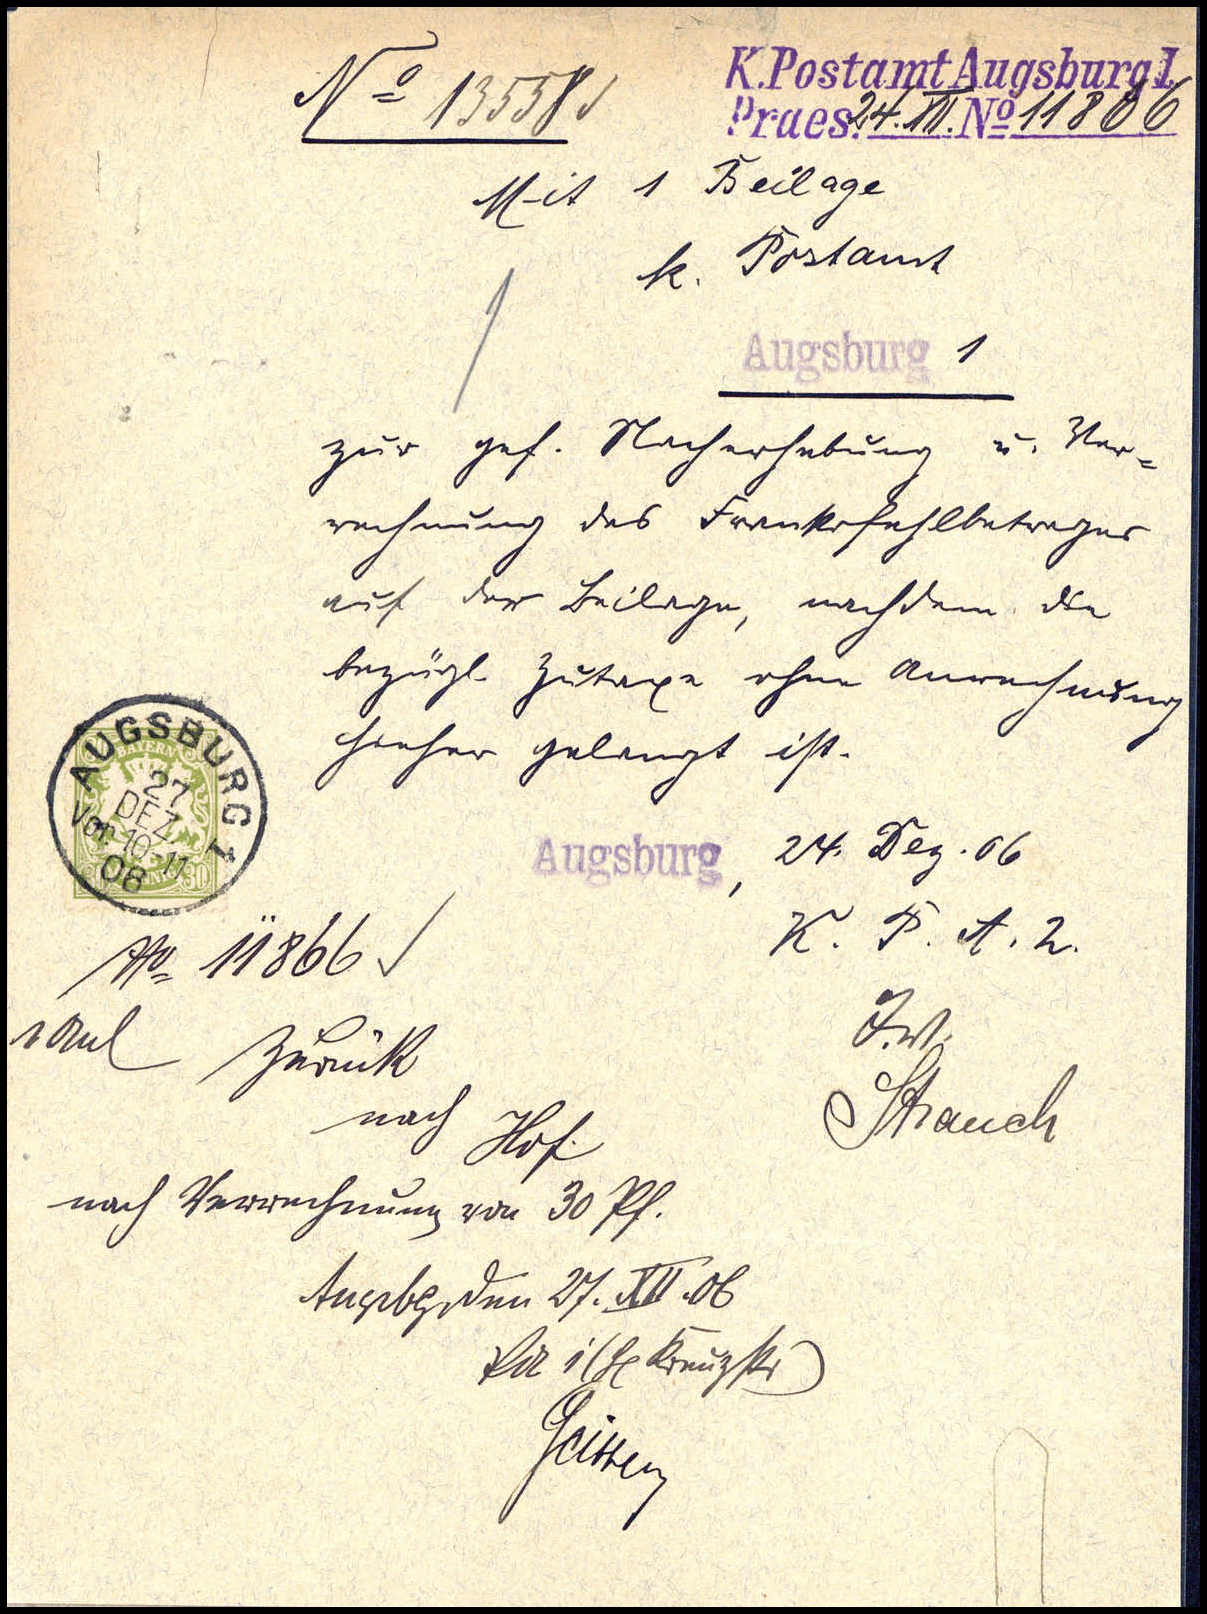 No 13558
K. Postamt Augsburg I.
Praes. 24. XII. No 11866
Mit 1 Beilage
k. Postamt
Augsburg 1
zur gef. Nacherhebung u. Ver=
rechnung des Frankofehlbetrages
auf der Beilage, nachdem die
bezügl. Zutaxe ohne Anrechnung
hieher gelangt ist.
AUGSBURG I
27
DEZ
Vor. 10-11
06
BAYERN
30
Augsburg, 24. Dez. 06
K. P. A. 2.
No 11866
J.V.
Strauch
Zurück
nach Hof.
nach Verrechnung von 30 Pf.
Augsbg, den 27. XII. 06
Kreuzstr)